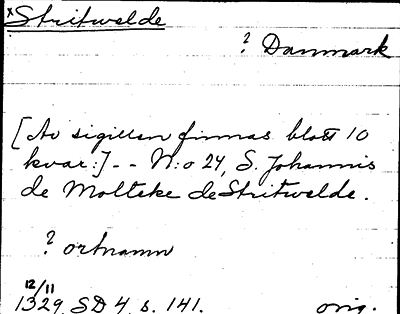 ×Stritwelde
? Danmark
[Av sigillen finnas blott 10
kvar:] -- N:o 24, S. Johannis
de Molteke de Stritwelde.
? ortnamn
12/11
1329 SD 4, s. 141. orig.